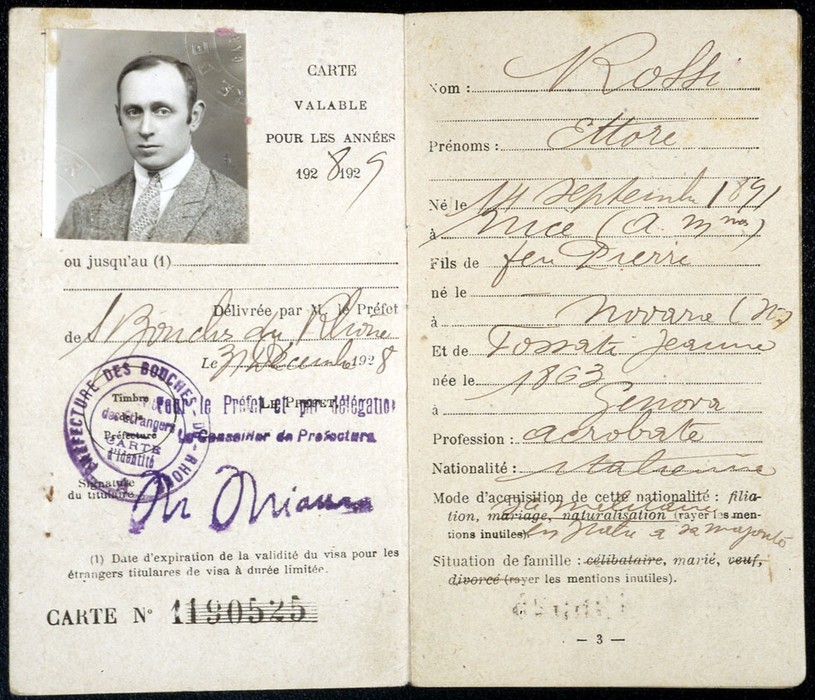 CARTE
VALABLE
POUR LES ANNÉES
1928 1929
ou jusqu'au (1)
Délivrée par M. le Préfet
des Bouches du Rhône
Le 31 Décembre 1928
PRÉFECTURE DES BOUCHES-DU-RHÔNE
Timbre
de la
Préfecture
des étrangers
CARTE
d'Identité
LE PRÉFET
Pour le Préfet et par délégation
Le Conseiller de Préfecture
Signature
du titulaire
(1) Date d'expiration de la validité du visa pour les
étrangers titulaires de visa à durée limitée.
CARTE N° 1190525
Nom : Rossi
Prénoms : Ettore
Né le 14 septembre 1891
à Nice (A. Mmes)
Fils de feu Pierre
né le
à Novare
Et de Fossati Jeanne
née le 1863
à Genova
Profession : acrobate
Nationalité : italienne
Mode d'acquisition de cette nationalité : filia-
tion, mariage, naturalisation (rayer les men-
tions inutiles). à sa majorité
Situation de famille : célibataire, marié, veuf,
divorcé (rayer les mentions inutiles).
— 3 —